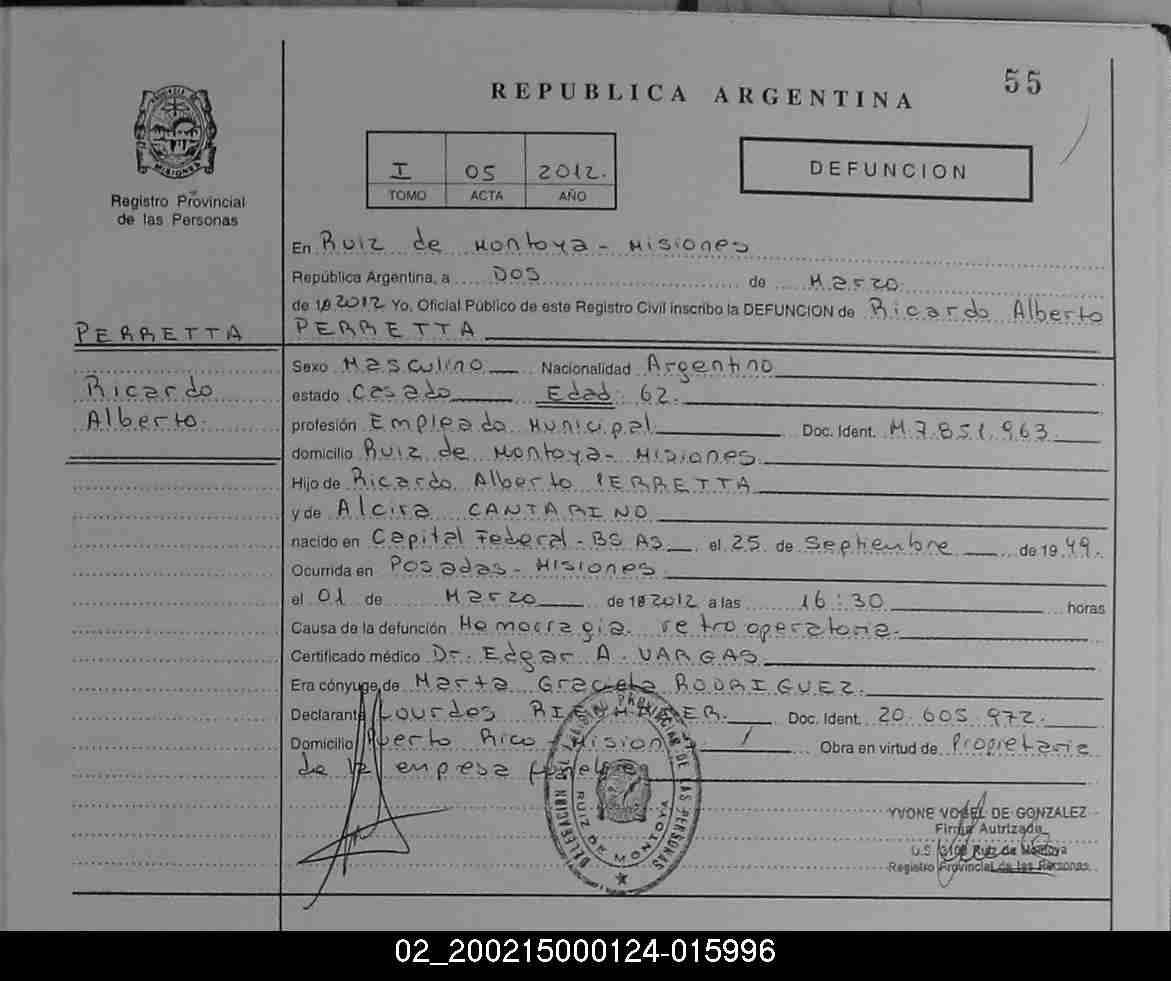 55
REPUBLICA ARGENTINA
I 05 2012.
TOMO ACTA AÑO
DEFUNCION
MISIONES
Registro Provincial
de las Personas
En Ruiz de Montoya - Misiones
República Argentina, a Dos de Marzo
de 2012 Yo, Oficial Público de este Registro Civil inscribo la DEFUNCION de Ricardo Alberto
PERRETTA
PERRETTA
Ricardo
Alberto.
Sexo Masculino Nacionalidad Argentino
estado Casado Edad: 62.
profesión Empleado Municipal Doc. Ident. M.7.851.963
domicilio Ruiz de Montoya - Misiones.
Hijo de Ricardo Alberto PERRETTA
y de Alcira CANTARINO
nacido en Capital Federal - BS AS el 25 de Septiembre de 1949.
Ocurrida en Posadas - Misiones
el 01 de Marzo de 2012 a las 16:30 horas
Causa de la defunción Hemorragia retro operatoria.
Certificado médico Dr. Edgar A. VARGAS
Era cónyuge de Marta Graciela RODRIGUEZ.
Declarante Lourdes Doc. Ident. 20.605.972.
Domicilio Puerto Rico - Misiones Obra en virtud de Propietaria
de la empresa funebre
DELEGACION DEL REGISTRO PROVINCIAL DE LAS PERSONAS
RUIZ DE MONTOYA
YVONE VOGEL DE GONZALEZ
Firma Autrizada
Ruiz de Montoya
Registro Provincial de las Personas
02_200215000124-015996